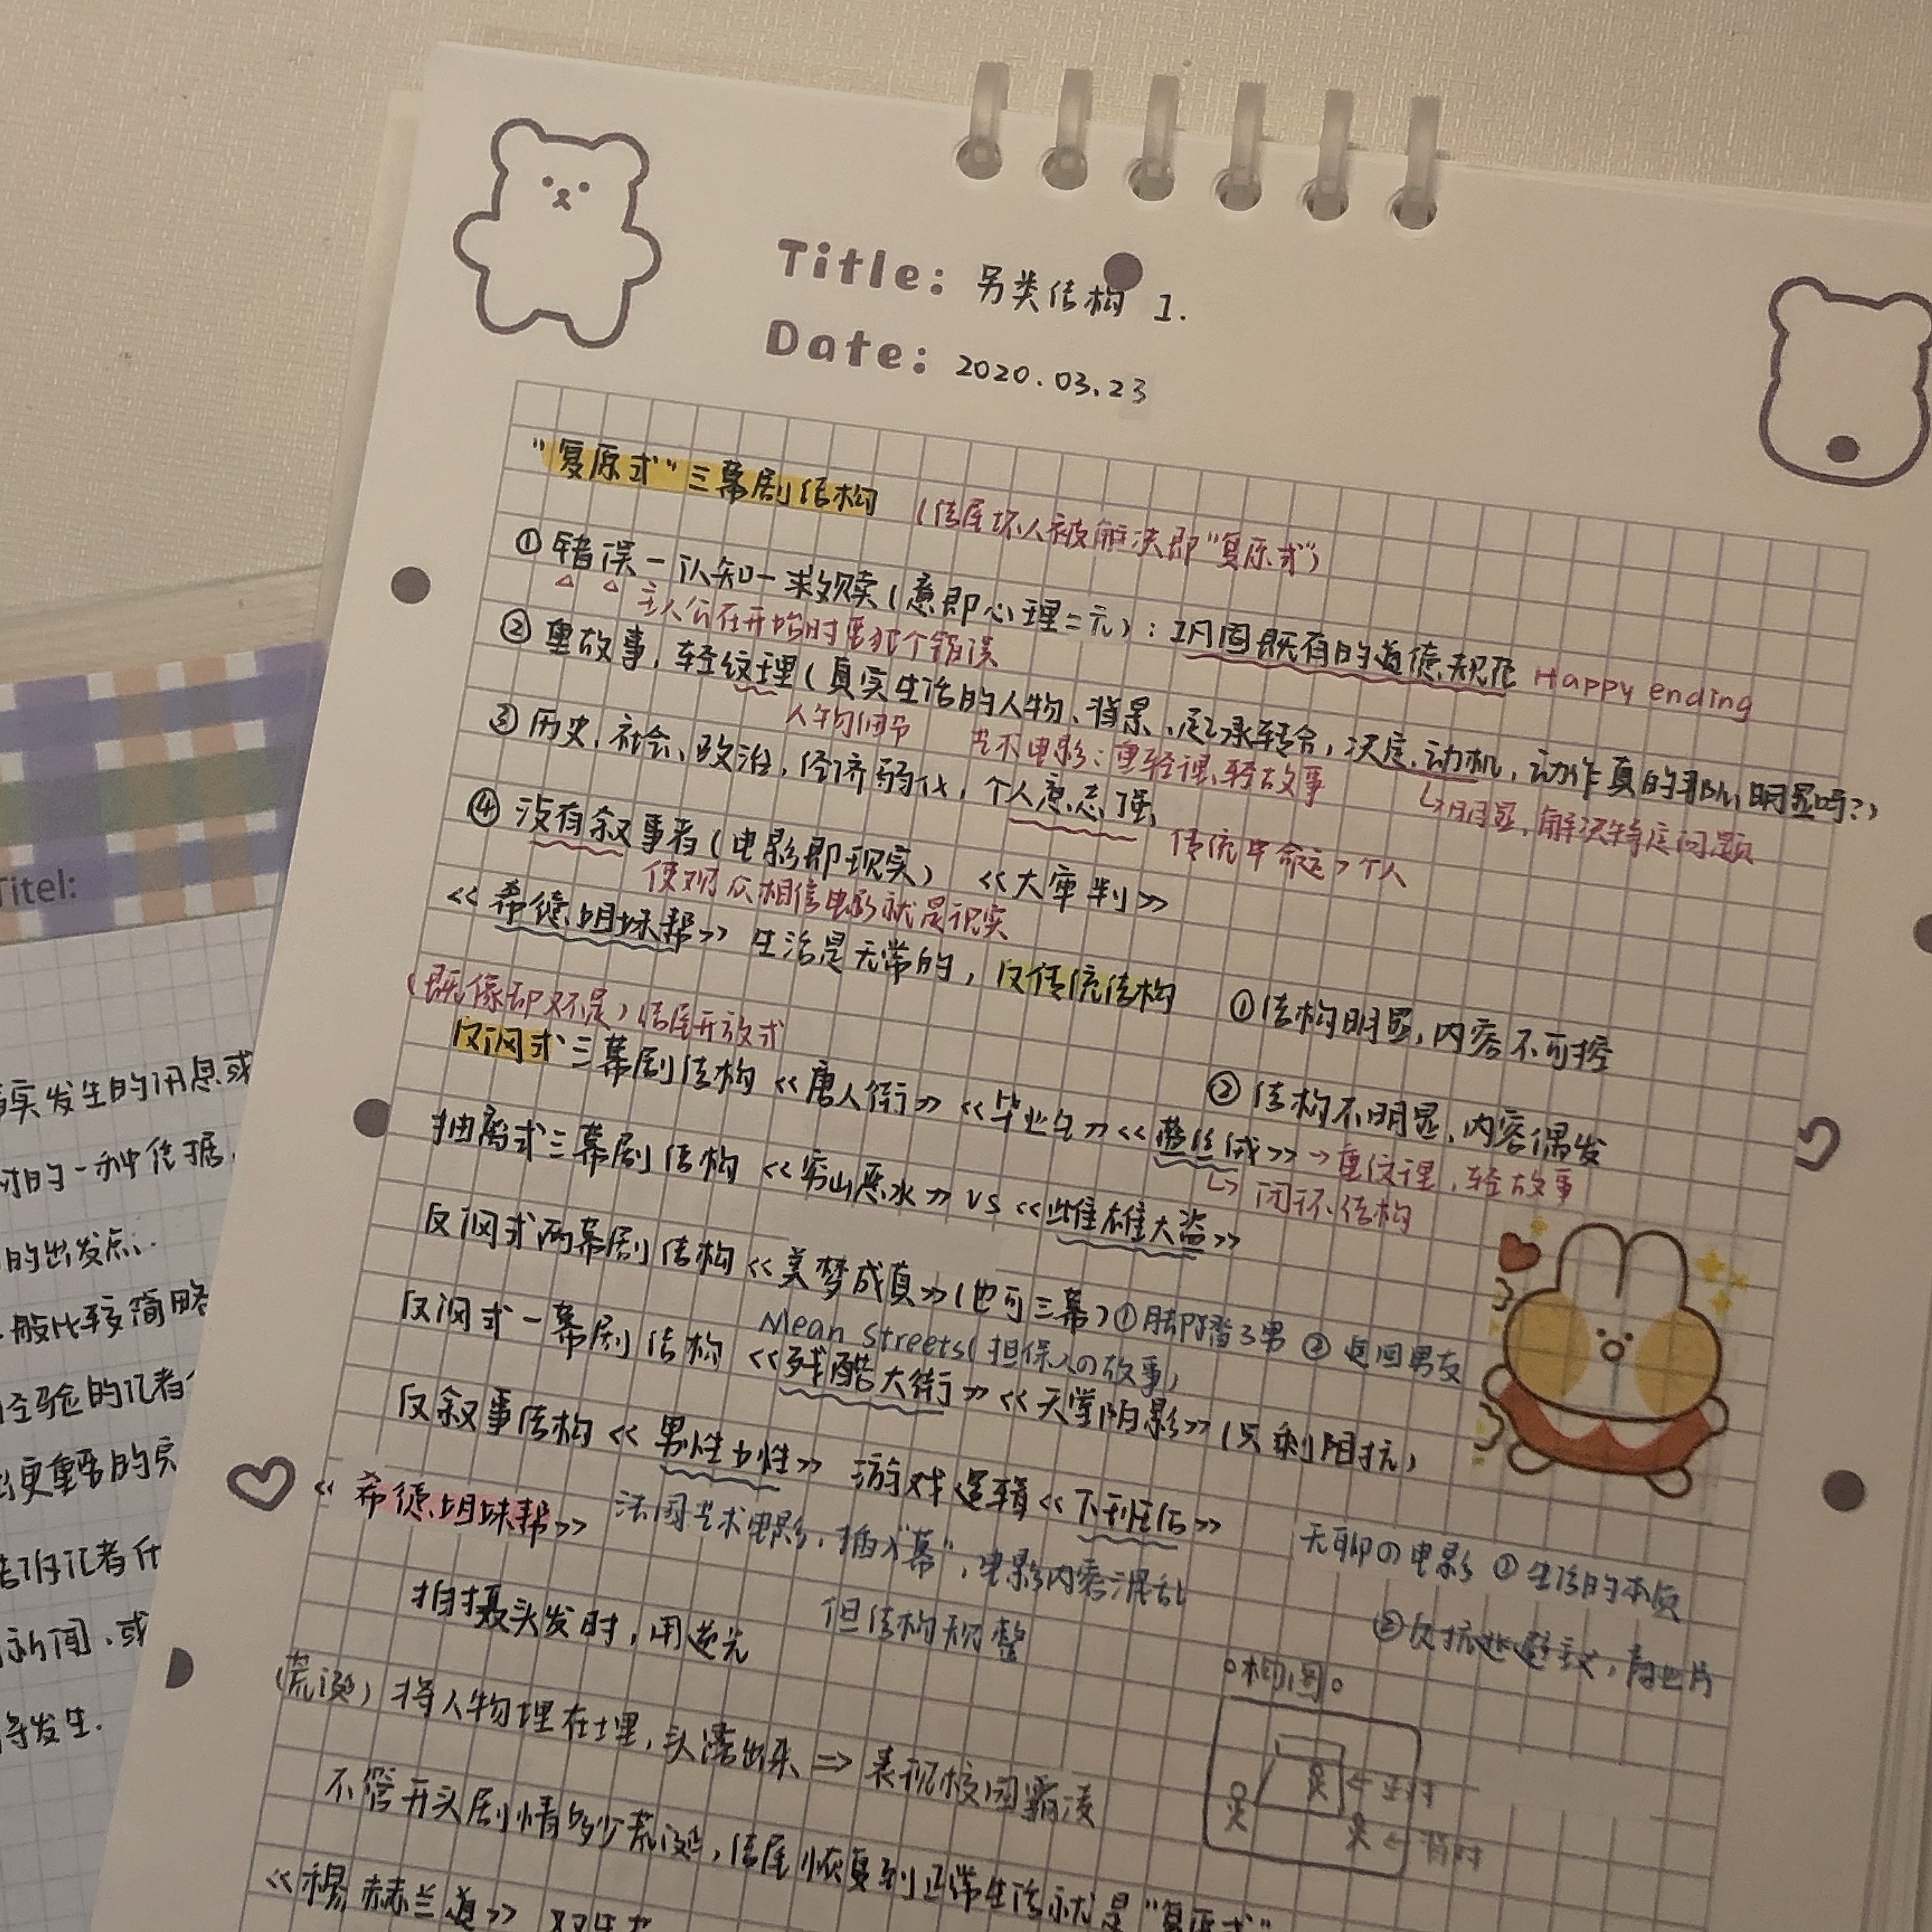 Title: 另类结构 1.
Date: 2020.03.23
"复原式"三幕剧结构
(结尾坏人被解决即"复原式")
① 错误-认知-救赎(意即心理二元):巩固既有的道德规范 Happy ending
主人公在开始时要犯个错误
② 重故事,轻纹理(真实生活的人物、背景、起承转合,决定、动机,动作真的那么明显吗?)
人物细节
艺术电影:重纹理、轻故事
↳明显,解决特定问题
③ 历史、社会、政治,经济弱化,个人意志强
传统中命运>个人
④ 没有叙事者(电影即现实) 《大审判》
使观众相信电影就是现实
《希德姐妹帮》 生活是无常的,反传统结构
①结构明显,内容不可控
②结构不明显,内容偶发
(既像却又不是)结尾开放式
反讽式三幕剧结构《唐人街》《毕业生》《蓝丝绒》→重纹理,轻故事
↳闭环结构
抽离式三幕剧结构《穷山恶水》VS《雌雄大盗》
反讽式两幕剧结构《美梦成真》(也可三幕)①脚踏3男 ②返回男友
Mean Streets(担保人の故事)
反讽式一幕剧结构 《残酷大街》《天堂陌影》(只剩阻抗)
反叙事结构《男性女性》 游戏逻辑《不利证伪》
《希德姐妹帮》 法国艺术电影,插入"幕",电影内容混乱
但结构规整
无聊の电影 ①生活的本质
拍摄头发时,用逆光
。相图。
(荒诞)将人物埋在土里,头露出来 ⇒ 表现校园霸凌
不管开头剧情多少荒诞,结尾恢复到正常生活就是"复原式"
《穆赫兰道》
Titel:
实发生的讯息或
时的一种信息,
的出发点.
般比较简略
经验的记者
更重要的
记者什
新闻,或
将发生.